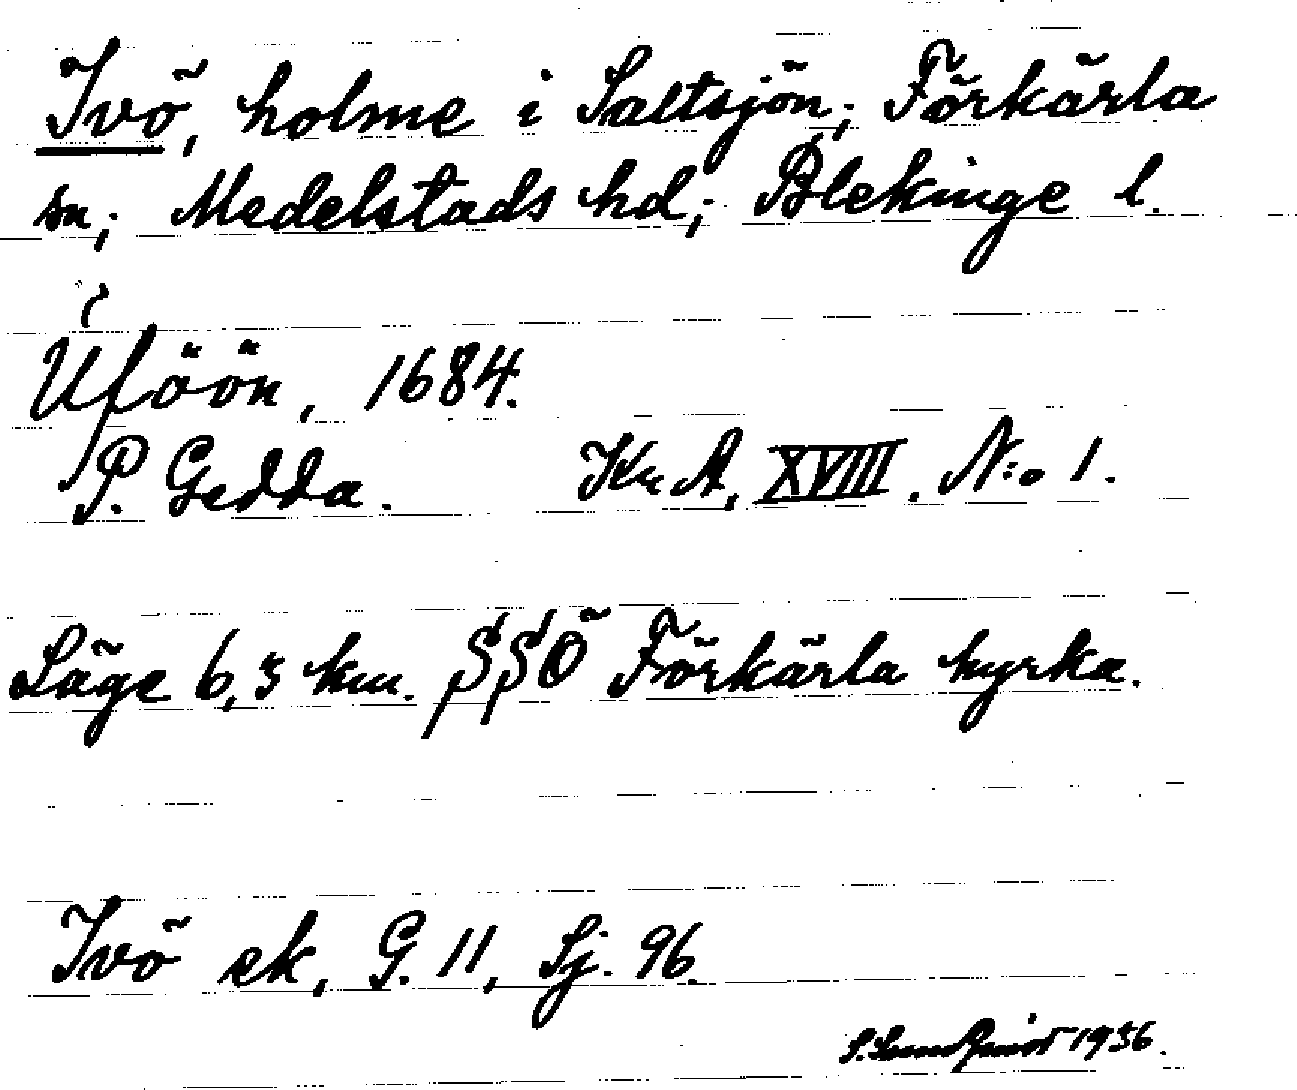 Ivö, holme i Saltsjön; Förkärla
sn; Medelstads hd; Blekinge l.
Uföön, 1684.
P. Gedda. Kr. A. XVIII. N:o 1.
Läge 6,5 km. SSÖ Förkärla kyrka.
Ivö ek, G. 11, Sj. 96.
1936.